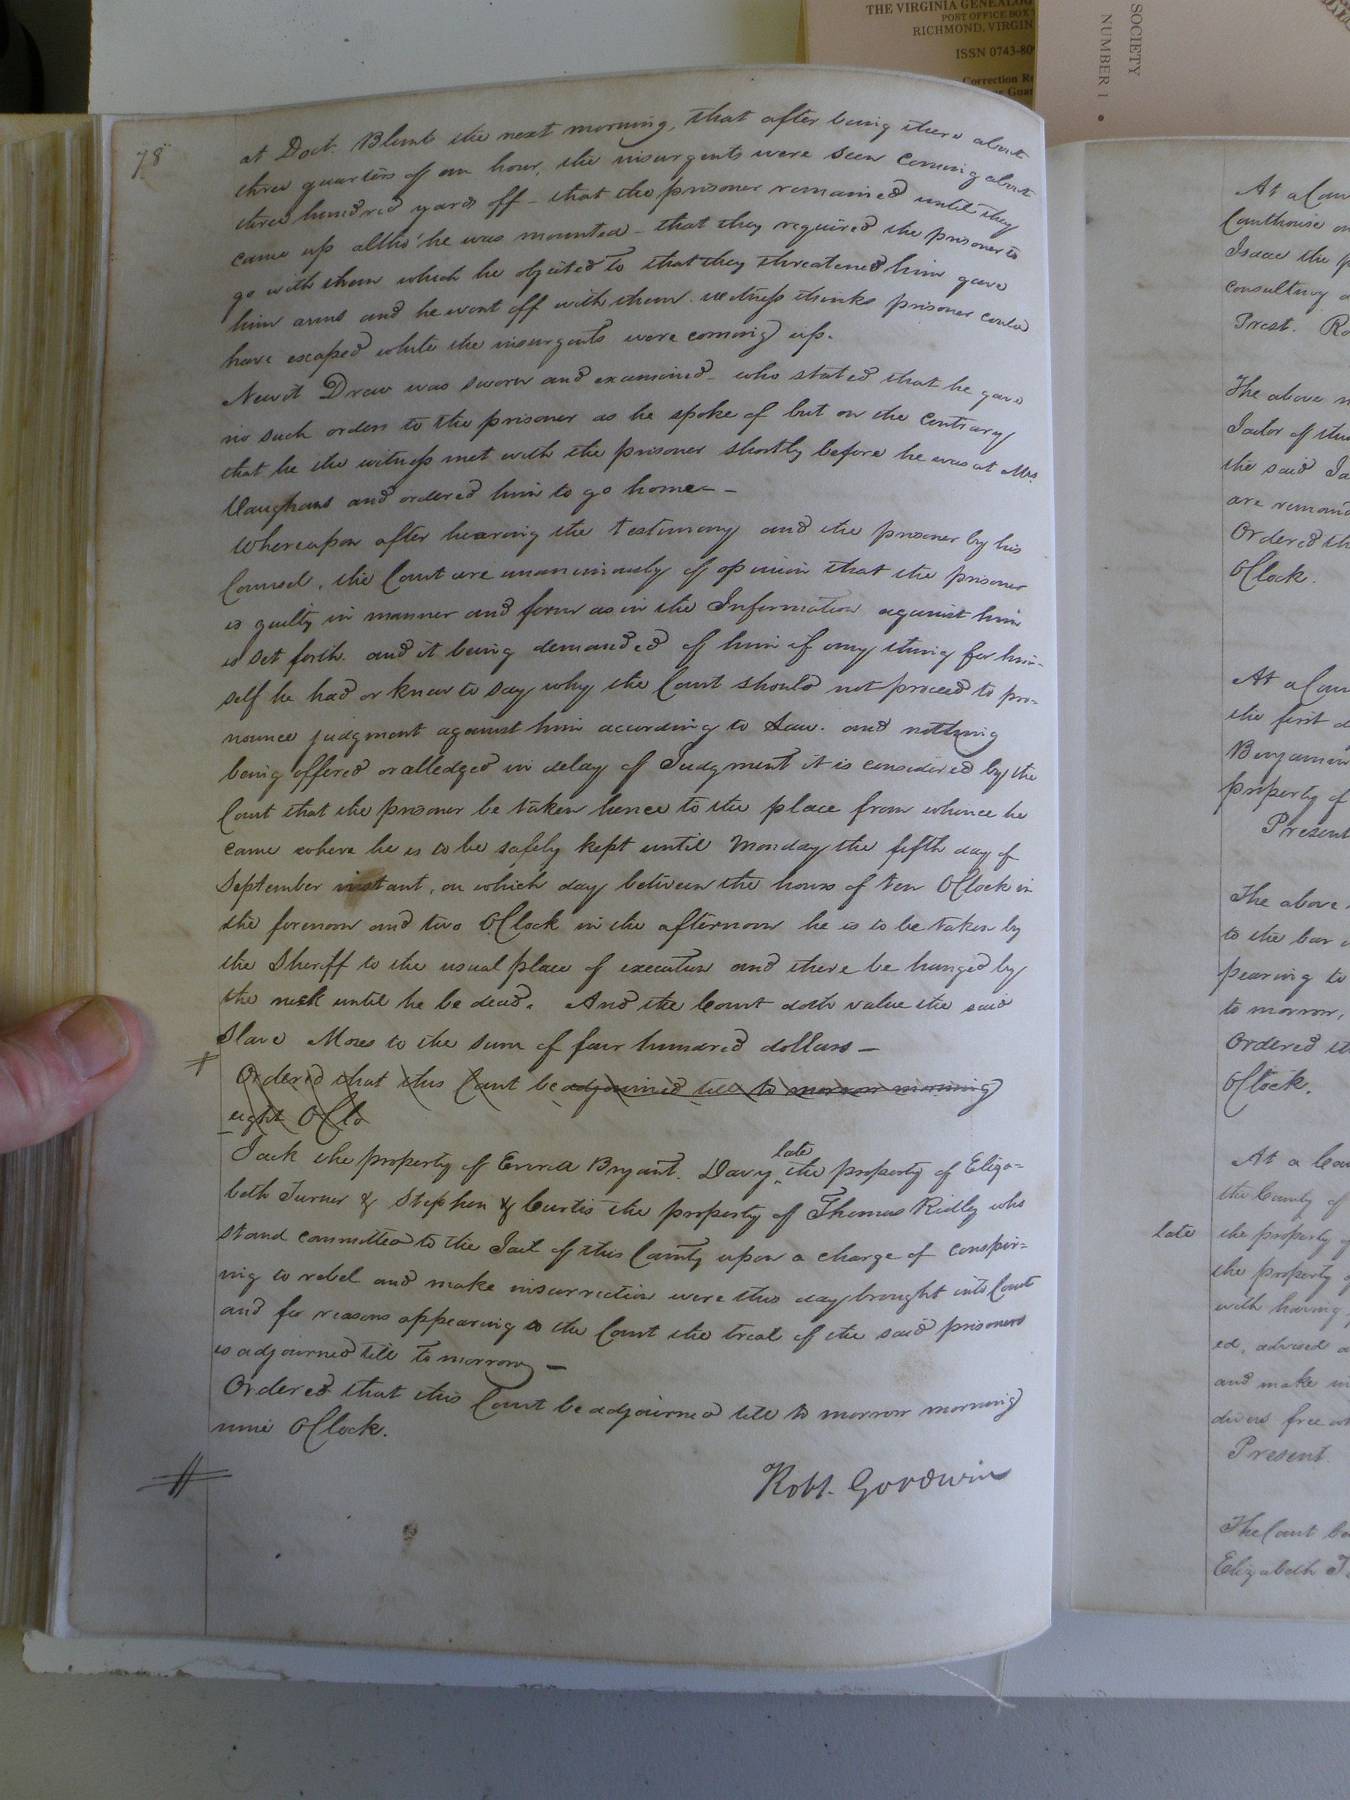 THE VIRGINIA GENEALOG
POST OFFICE BOX
RICHMOND, VIRGIN
ISSN 0743-809
Correction Re
Guar
SOCIETY
NUMBER 1
78
at Doct. Blunts the next morning, that after being there about
three quarters of an hour, the insurgents were seen coming about
three hundred yards off - that the prisoner remained until they
came up altho' he was mounted - that they required the prisoner to
go with them which he objected to that they threatened him gave
him arms and he went off with them. witness thinks prisoner could
have escaped while the insurgents were coming up.
Newit Drew was sworn and examined - who stated that he gave
no such orders to the prisoner as he spoke of but on the contrary
that he the witness met with the prisoner shortly before he was at Mrs.
Vaughans and ordered him to go home - -
Whereupon after hearing the testimony and the prisoner by his
Counsel, the Court are unanimously of opinion that the prisoner
is guilty in manner and form as in the Information against him
is set forth. and it being demanded of him if any thing for him-
self he had or knew to say why the Court should not proceed to pro-
nounce judgment against him according to Law. and nothing
being offered or alledged in delay of Judgment it is considered by the
Court that the prisoner be taken hence to the place from whence he
came where he is to be safely kept until Monday the fifth day of
September instant, on which day between the hours of ten OClock in
the forenoon and two OClock in the afternoon he is to be taken by
the Sheriff to the usual place of execution and there be hanged by
the neck until he be dead. And the Court doth value the said
Slave Moses to the sum of four hundred dollars -
Ordered that this Court be adjourned till to morrow morning
eight OClo
Jack the property of Everett Bryant. Davy late the property of Eliza=
beth Turner & Stephen & Curtis the property of Thomas Ridley who
stand committed to the Jail of this County upon a charge of conspir=
ing to rebel and make insurrection were this day brought into Court
and for reasons appearing to the Court the trial of the said prisoners
is adjourned till to morrow -
Ordered that this Court be adjourned till to morrow morning
nine OClock.
Robt. Goodwin
At a Cour
Courthouse on
Isaac the p
consulting a
Prest. Ro
The above n
Jailor of this
the said Ja
are remand
Ordered th
OClock.
At a Cour
the first d
Benjamin
property of
Present
The above
to the bar
pearing to
to morrow,
Ordered th
OClock.
At a Cou
the County of
late
the property of
the property of
with having
ed, advised a
and make in
divers free wh
Present.
The Court be
Elizabeth T